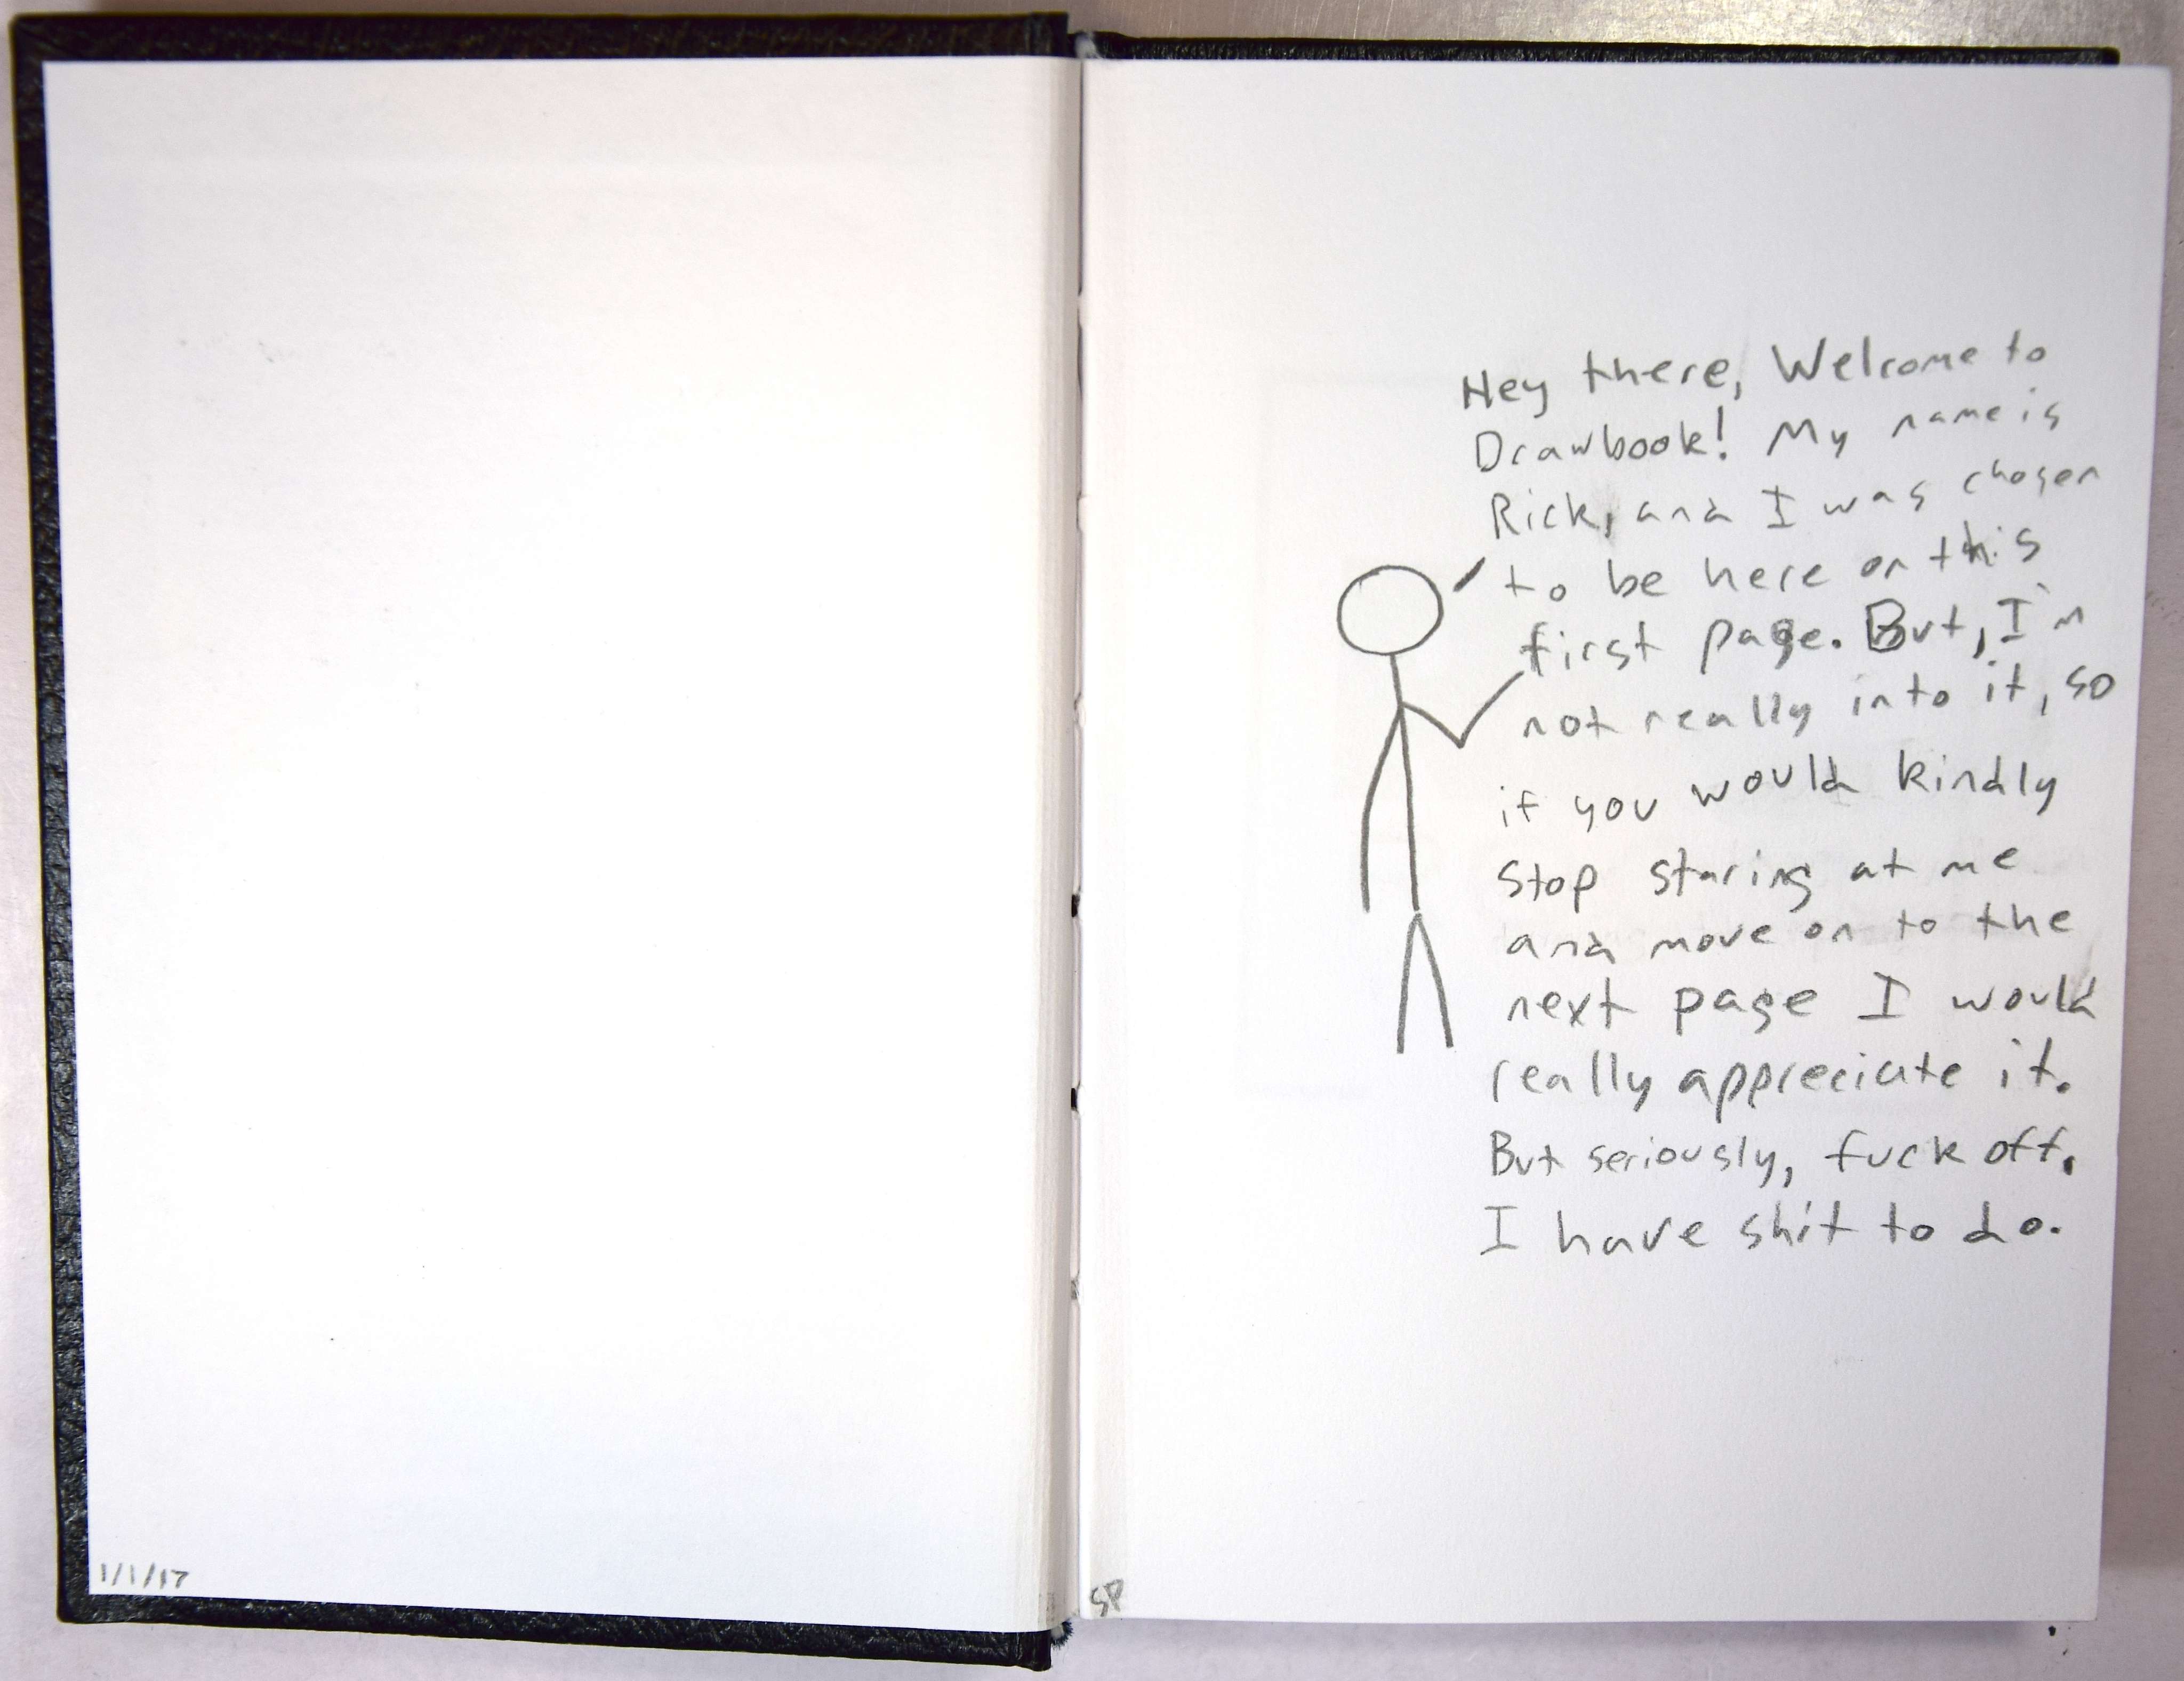 Hey there, Welcome to
Drawbook! My name is
Rick, and I was chosen
to be here on this
first page. But, I'm
not really into it, so
if you would kindly
stop staring at me
and move on to the
next page I would
really appreciate it.
But seriously, fuck off.
I have shit to do.
1/1/17
SP